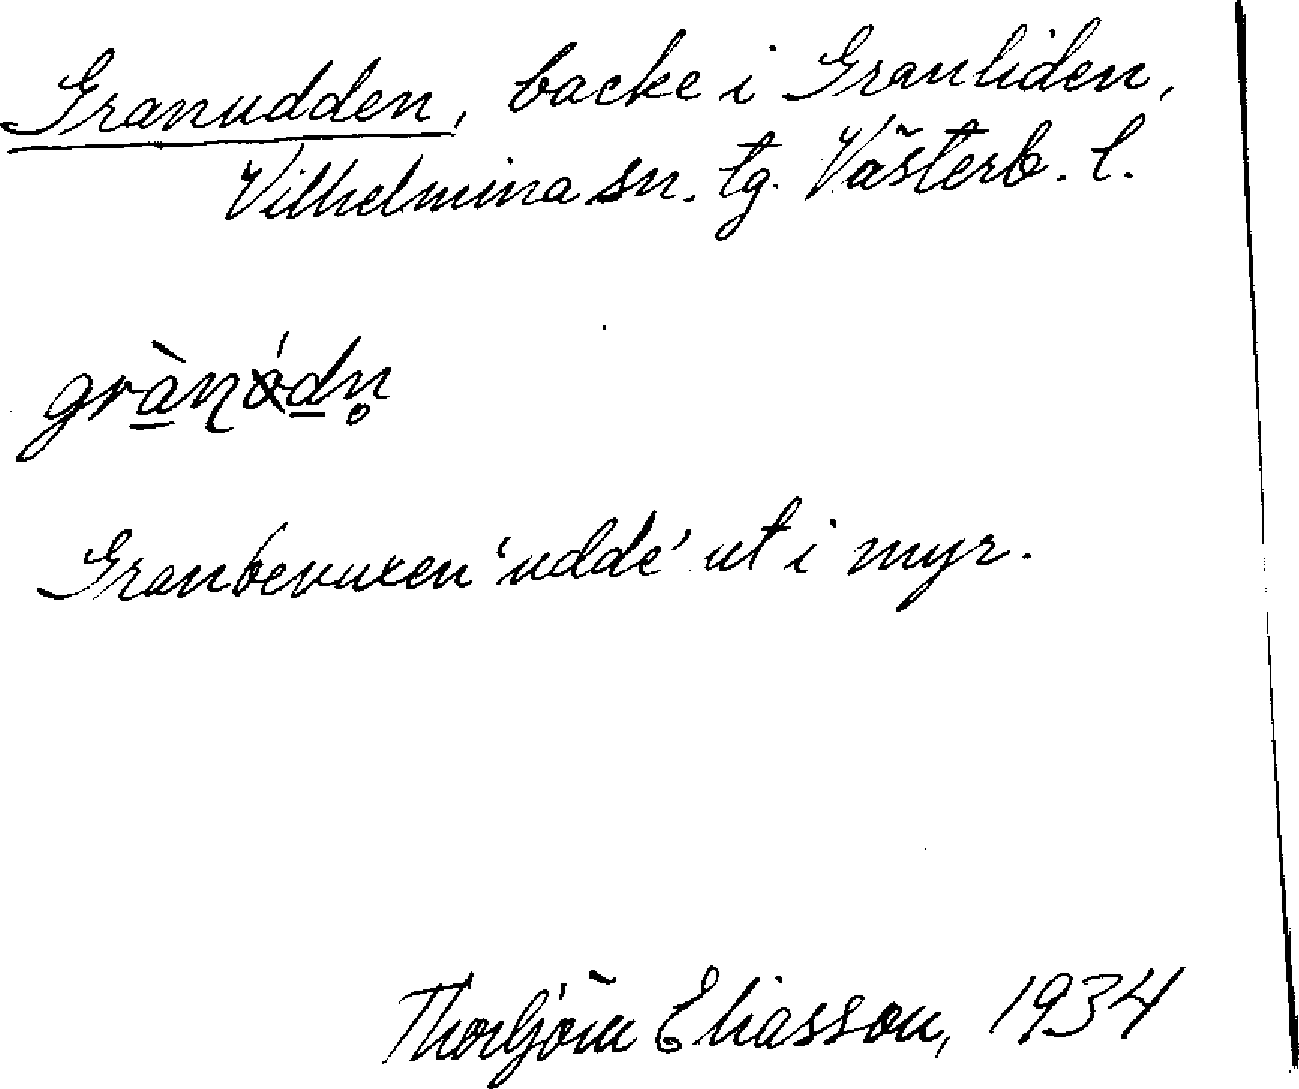 Granudden, backe i Granliden,
Vilhelmina sn. tg. Västerb. l.
Granbevuxen 'udde' ut i myr.
Thorbjörn Eliasson, 1934